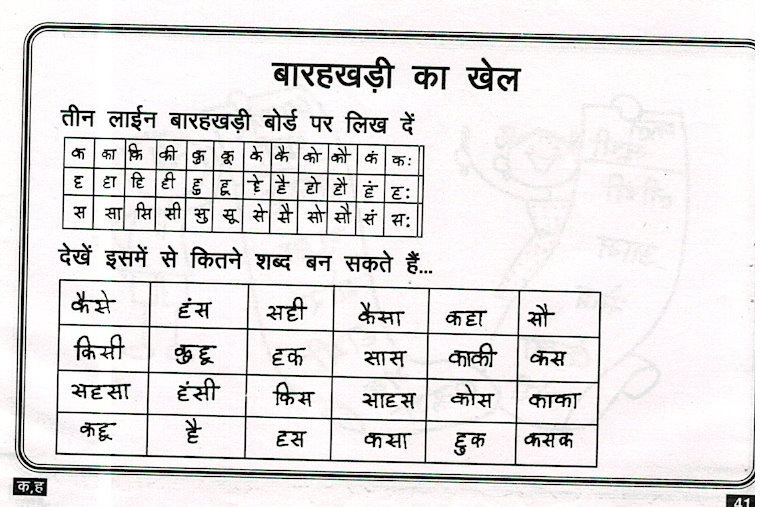 बारहखड़ी का खेल
तीन लाईन बारहखड़ी बोर्ड पर लिख दें
क का कि की कु कू के कै को कौ कं कः
ह हा हि ही हु हू हे है हो हौ हं हः
स सा सि सी सु सू से सै सो सौ सं सः
देखें इसमें से कितने शब्द बन सकते हैं...
कैसे हंस सही कैसा कहा सौ
किसी कुहू हक सास काकी कस
सहसा हंसी किस साहस कोस काका
कहू है हस कसा हुक कसक
क,ह
41